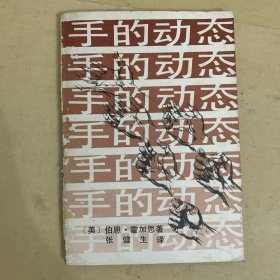 手的动态
手的动态
手的动态
手的动态
手的动态
手的动态
手的动态
〔美〕伯恩·霍加思著
张健生译